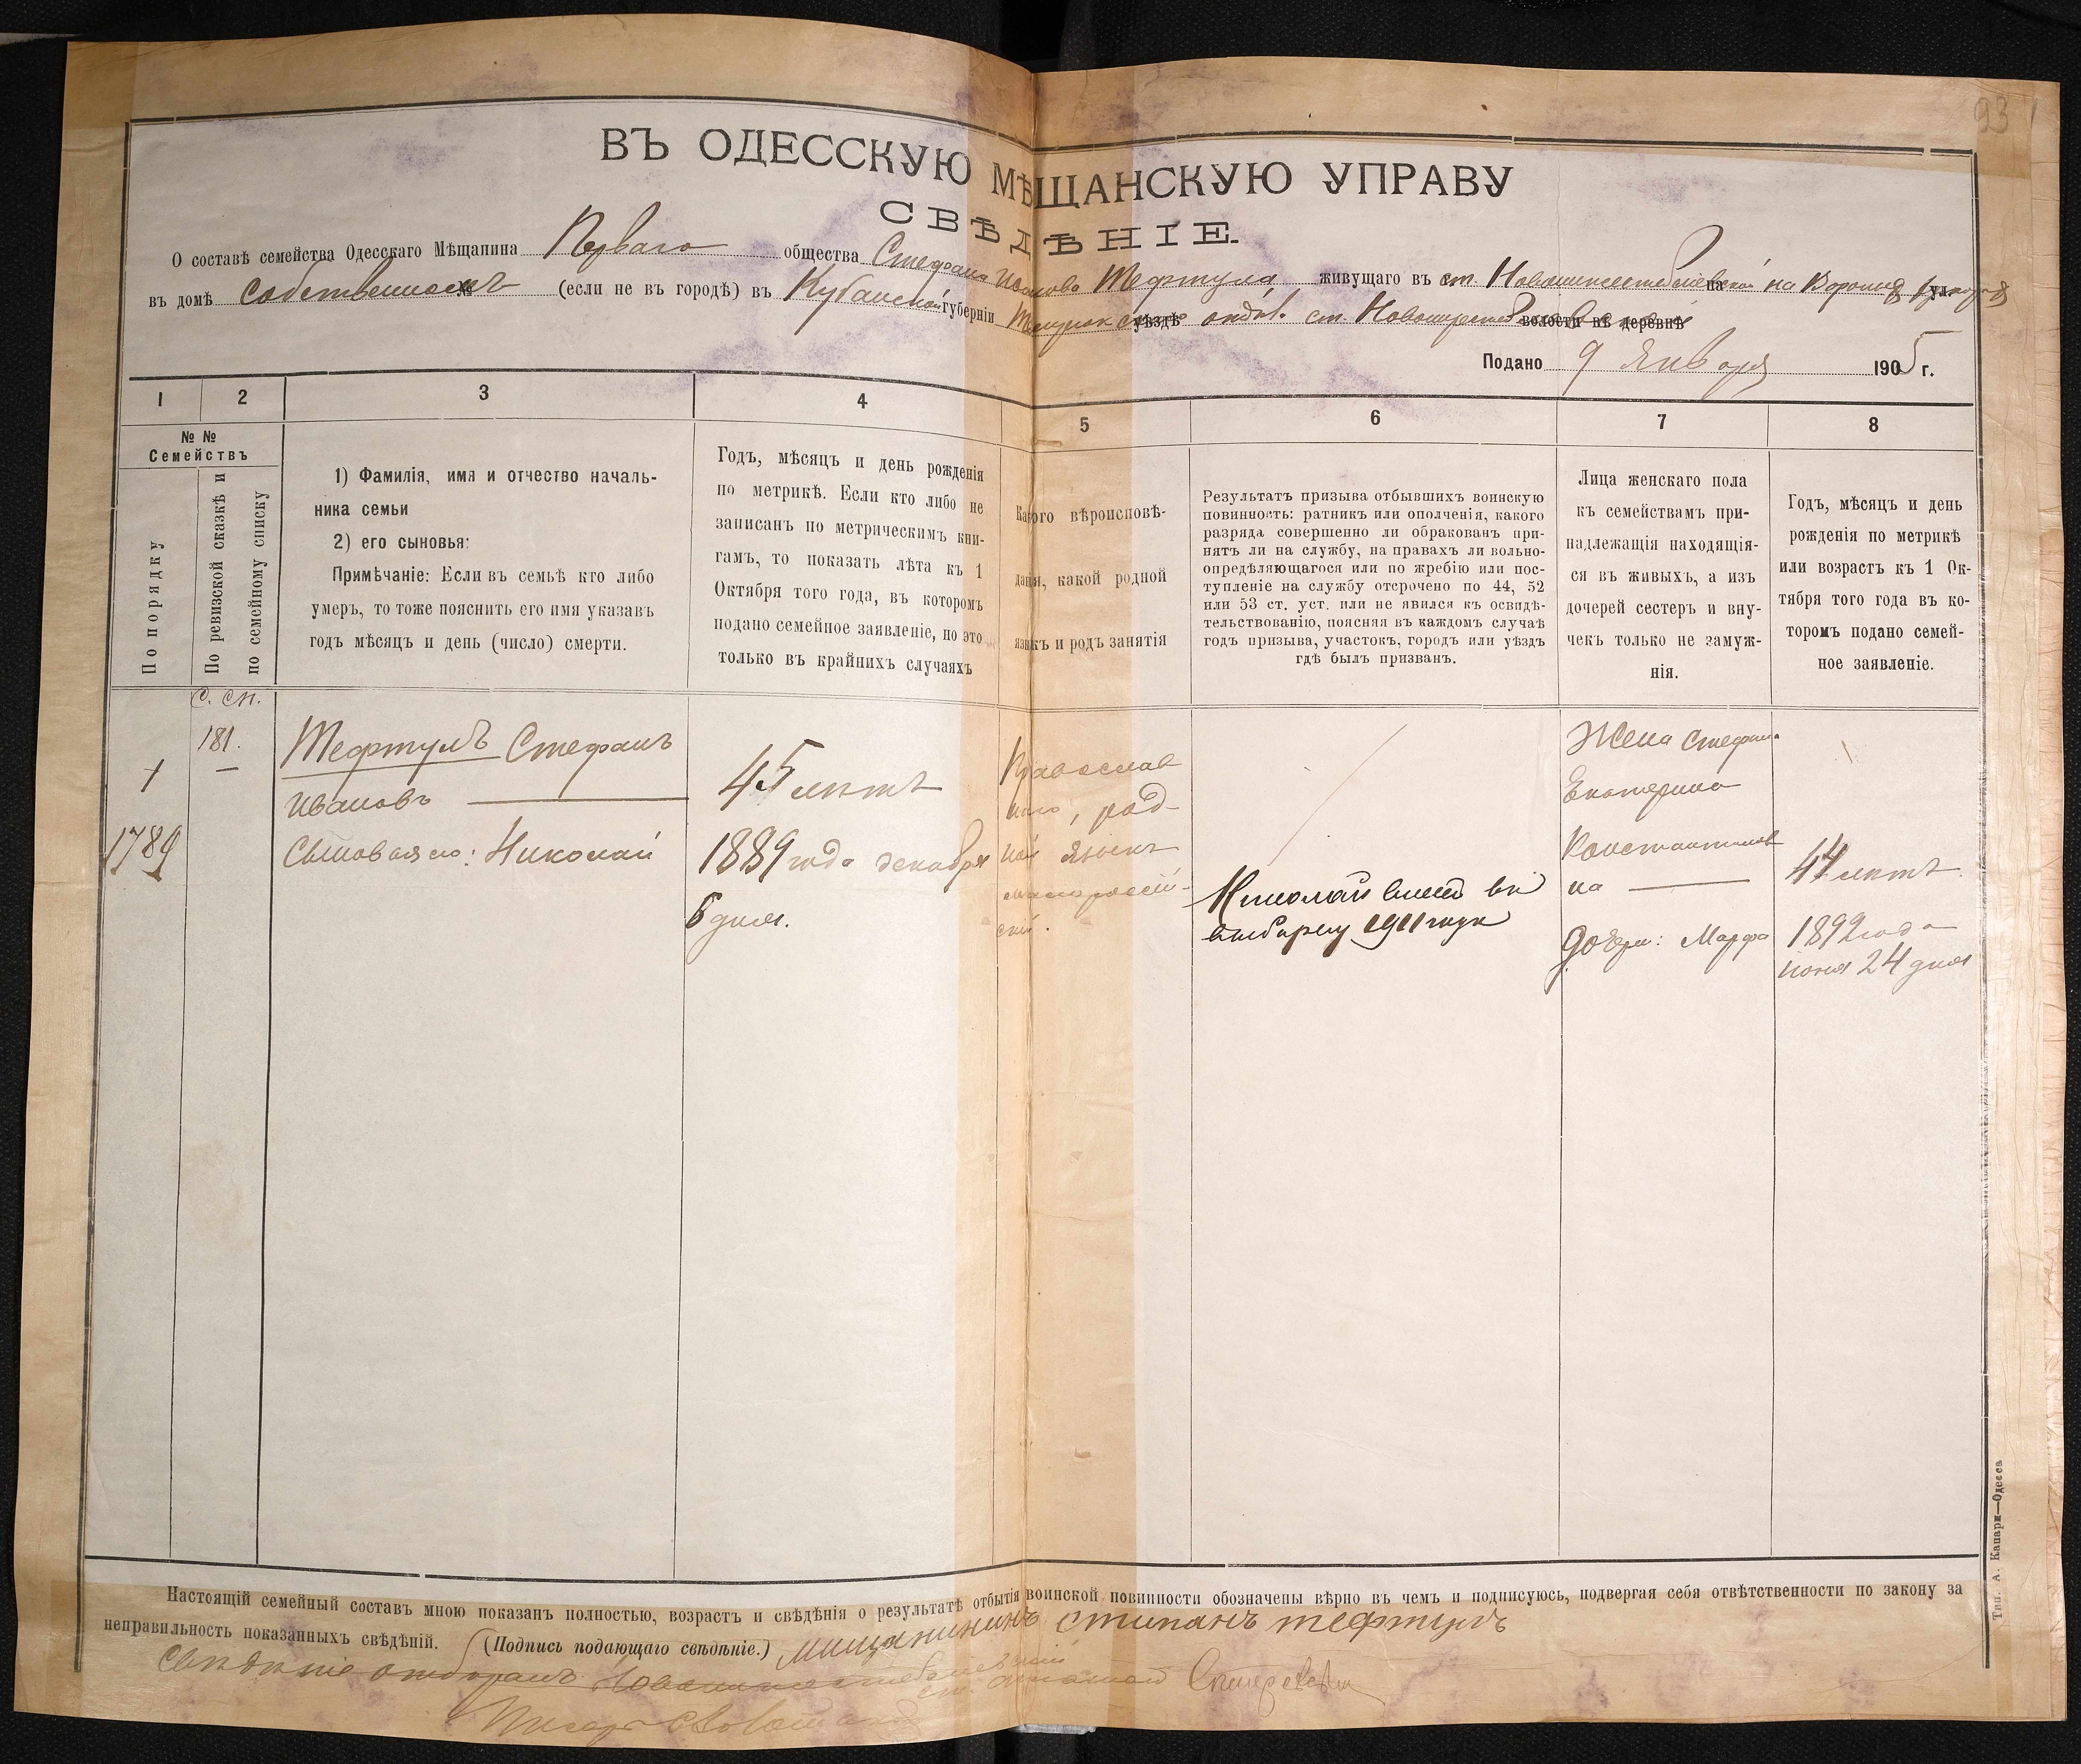 93
ВЪ ОДЕССКУЮ МѢЩАНСКУЮ УПРАВУ
СВѢДѢНІЕ.
О составѣ семейства Одесскаго Мѣщанина Перваго общества Стефана Иванова Тефтула живущаго въ ст. на
въ домѣ (если не въ городѣ) въ Кубанской губерніи уѣздѣ отдѣл. ст. волости въ деревнѣ
Подано 9 Января 1905 г.
1 2 3 4 5 6 7 8
№ №
Семействъ
По порядку
По ревизской сказкѣ и
по семейному списку
1) Фамилія, имя и отчество началь-
ника семьи
2) его сыновья:
Примѣчаніе: Если въ семьѣ кто либо
умеръ, то тоже пояснить его имя указавъ
годъ мѣсяцъ и день (число) смерти.
Годъ, мѣсяцъ и день рожденія
по метрикѣ. Если кто либо не
записанъ по метрическимъ кни-
гамъ, то показать лѣта къ 1
Октября того года, въ которомъ
подано семейное заявленіе, но это
только въ крайнихъ случаяхъ
Какого вѣроисповѣ-
данія, какой родной
языкъ и родъ занятія
Результатъ призыва отбывшихъ воинскую
повинность: ратникъ или ополченія, какого
разряда совершенно ли обракованъ при-
нятъ ли на службу, на правахъ ли вольно-
опредѣляющагося или по жребію или пос-
тупленіе на службу отсрочено по 44, 52
или 53 ст. уст. или не явился къ освидѣ-
тельствованію, поясняя въ каждомъ случаѣ
годъ призыва, участокъ, городъ или уѣздъ
гдѣ былъ призванъ.
Лица женскаго пола
къ семействамъ при-
надлежащія находящія-
ся въ живыхъ, а изъ
дочерей сестеръ и вну-
чекъ только не замуж-
нія.
Годъ, мѣсяцъ и день
рожденія по метрикѣ
или возрастъ къ 1 Ок-
тября того года въ ко-
торомъ подано семей-
ное заявленіе.
с. сп.
1
1789
181.
Тефтулъ Стефанъ
Ивановъ
Сыновья его: Николай
45 лѣтъ
1889 года декабря
6 дня.
Православ
наго, род-
ной языкъ
малороссій-
скій.
Николай внесенъ въ
выборку 1911 года
Жена Стефана
Екатерина
Константинов
на
дочери: Марфа
44 лѣтъ
1892 года
іюня 24 дня
Настоящій семейный составъ мною показанъ полностью, возрастъ и свѣдѣнія о результатѣ отбытія воинской повинности обозначены вѣрно въ чемъ и подписуюсь, подвергая себя отвѣтственности по закону за
неправильность показанныхъ свѣдѣній. (Подпись подающаго свѣдѣніе.) мищанинъ стипанъ тефтулъ
Свѣдѣніе отбиралъ
Писарь
Тип. А. Капари—Одесса